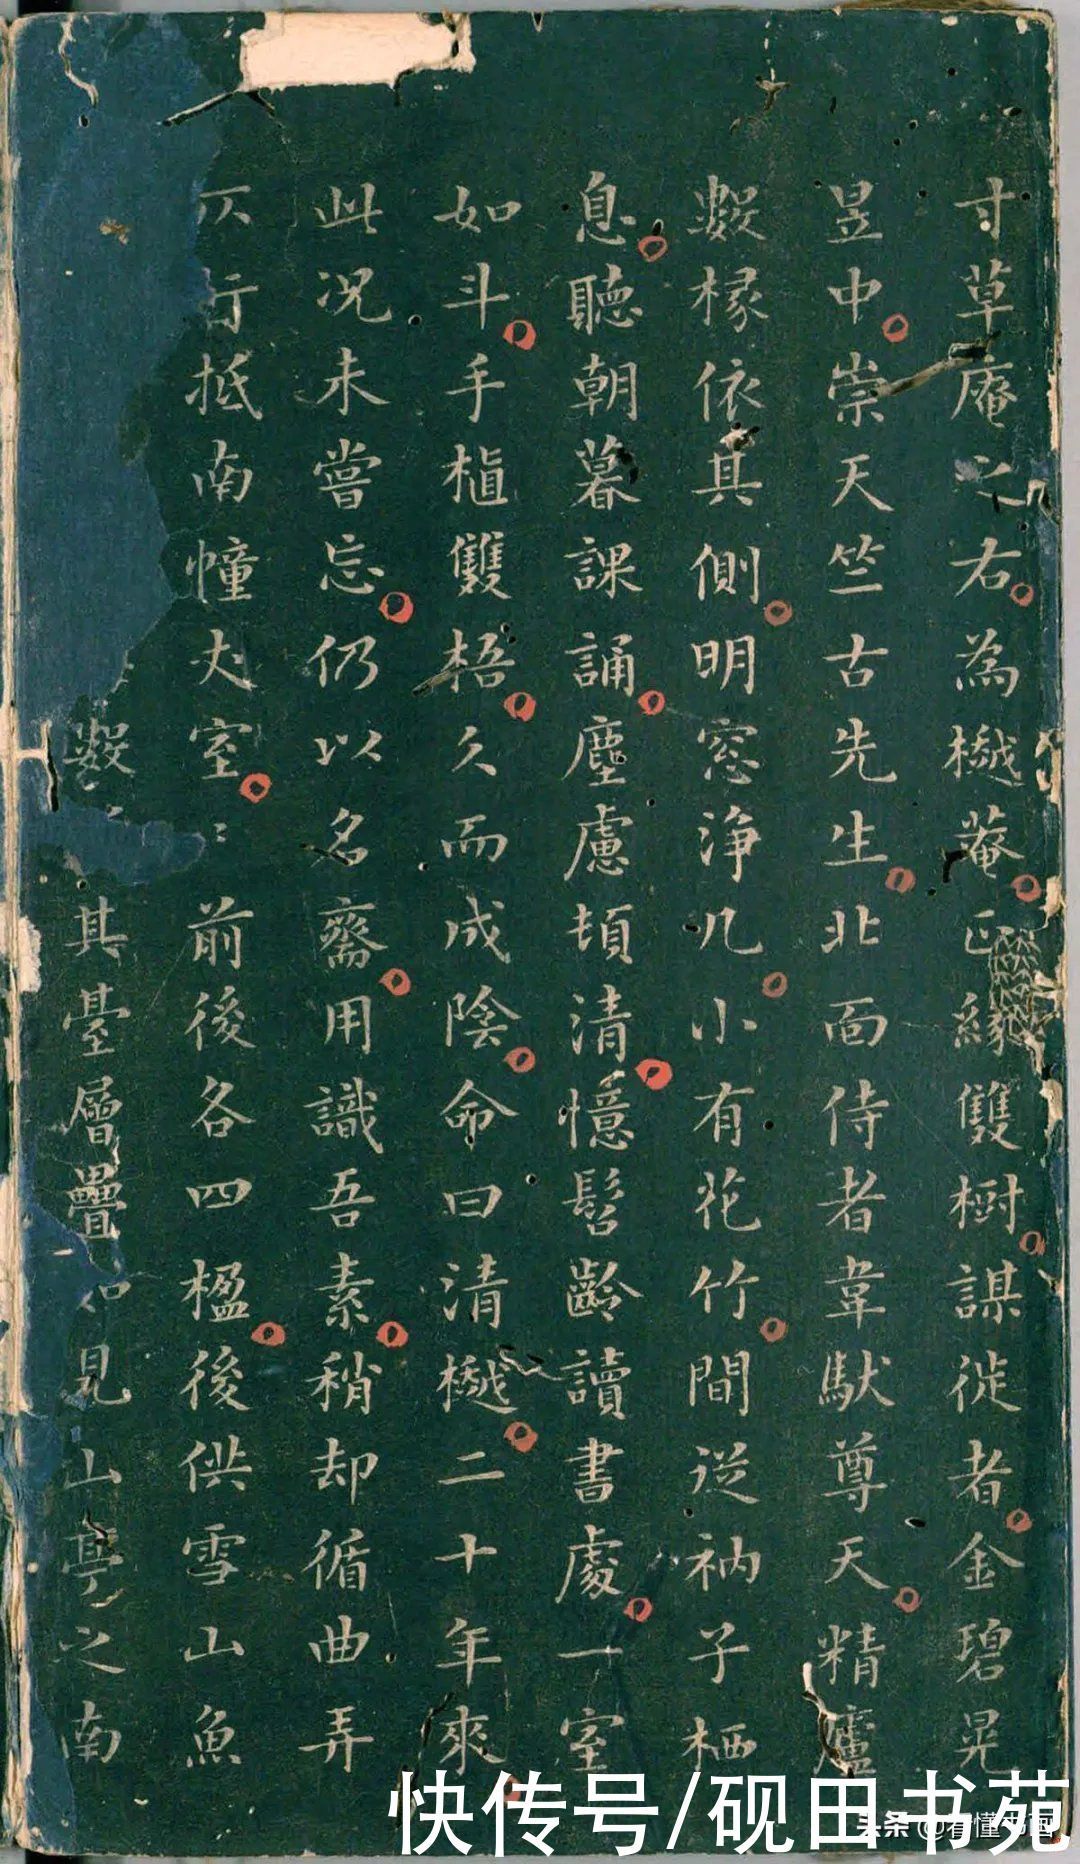 寸草庵之右為樾菴正緣雙樹謀徙者金碧晃
昱中崇天竺古先生北面侍者韋馱尊天精廬
數椽依其側明窓淨几小有花竹間從衲子栖
息聽朝暮課誦塵慮頓清憶髫齡讀書處一室
如斗手植雙梧久而成陰命曰清樾二十年來
此况未嘗忘仍以名齋用識吾素稍却循曲弄
仄行抵南幢丈室前後各四楹後供雪山魚
數其臺層疊見山亭之南
快传号/砚田书苑
头条 @看懂书画